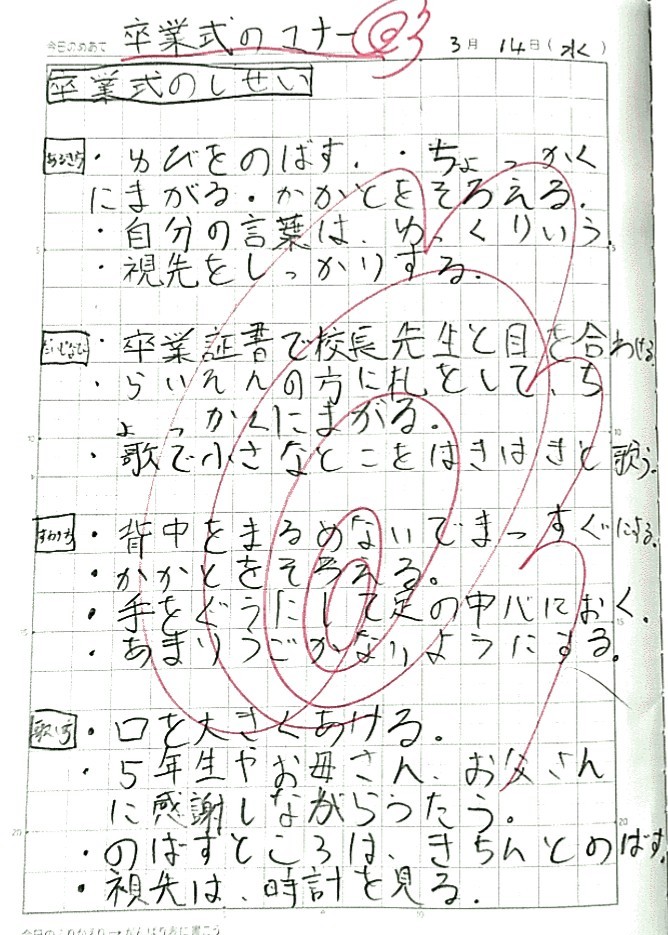 今日のめあて 卒業式のマナー 3月14日(水)
卒業式のしせい
あるき方 ・ゆびをのばす。・ちょっかく
にまがる・かかとをそろえる。
・自分の言葉は、ゆっくりいう。
・視先をしっかりする。
・卒業証書で校長先生と目を合わせる。
・らいひんの方に札をして、ち
ょっかくにまがる。
・歌で小さなとこをはきはきと歌う。
すわり方 ・背中をまるめないでまっすぐにする。
・かかとをそろえる。
・手をぐうにして定の中心におく。
・あまりうごかないようにする。
歌い方 ・口を大きくあける。
・5年生やお母さん、お父さん
に感謝しながらうたう。
・のばすところは、きちんとのばす。
・視先は、時計を見る。